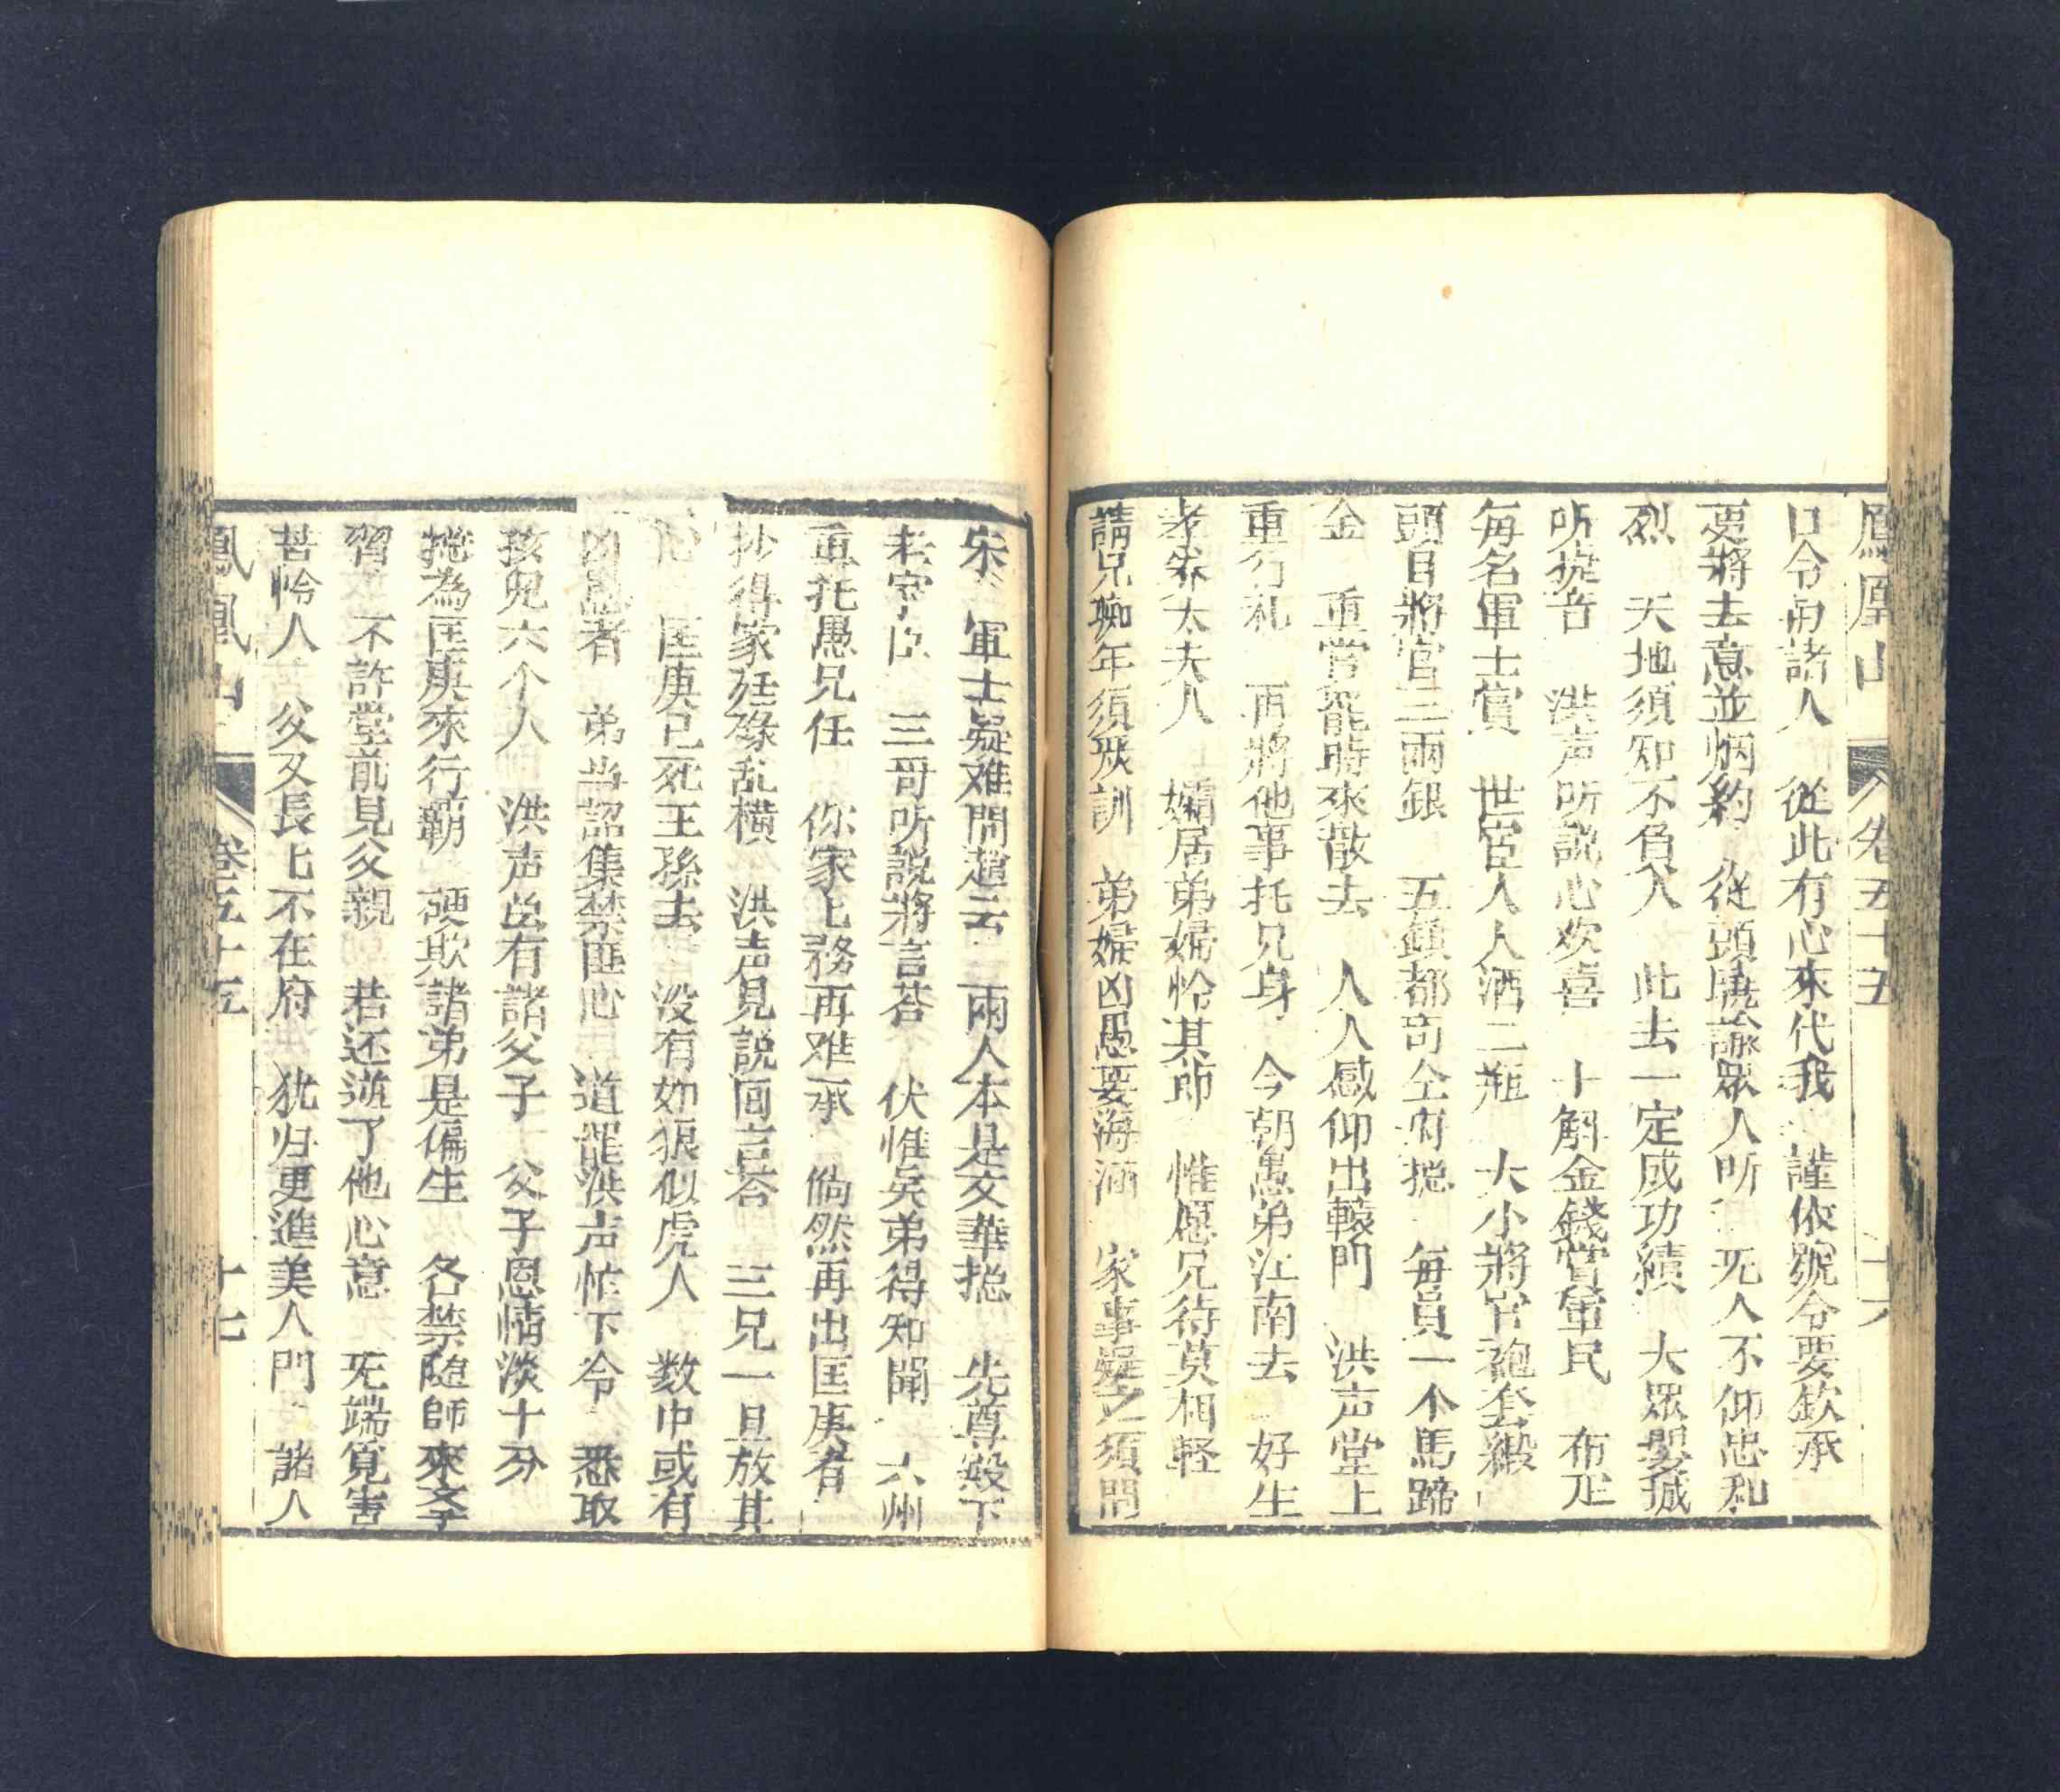 鳳凰山 卷五十五 十六
口令 諸人 從此有心來代我 謹依號令要欽承
要將去意並烟約 從頭曉諭眾人听 无人不仰忠和
烈 天地須知不負人 此去一定成功績 大眾
听 音 洪声听說心欢喜 十解金錢賞軍民 布疋
每名軍士賞 世宦人人酒二瓶 大小將官袍套緞
頭目將官三兩銀 五鎮都司仝府捴 每員一个馬蹄
金 重賞罷時來散去 人人感仰出轅門 洪声堂上
重行礼 再將他事托兄身 今朝愚弟江南去 好生
孝养太夫人 孀居弟婦怜其節 惟愿兄待莫相轻
請兄 年須 訓 弟婦凶愚要海涵 家事 之須問
宋 軍士疑难問趙云 二兩人本是文華捴 先尊殿下
老家臣 三哥听説將言荅 伏惟吳弟得知聞 六州
重托愚兄任 你家上務再难承 倘然再出匡庚者
抄得家廷碌乱橫 洪声見説囬言荅 三兄一旦放其
心 匡庚已死王孫去 没有如狼似虎人 数中或有
凶愚者 弟当詔集禁匪心 道罷洪声忙下令 悉取
孩兒六个人 洪声 有諸父子 父子恩情淡十分
捴為匡庚來行霸 硬欺諸弟是偏生 各禁随師來文字
習 不許堂前見父親 若还逆了他心意 无端寬害
苦怜人 父又長上不在府 犹归更進美人門 諸人
鳳凰山 卷五十五 十七